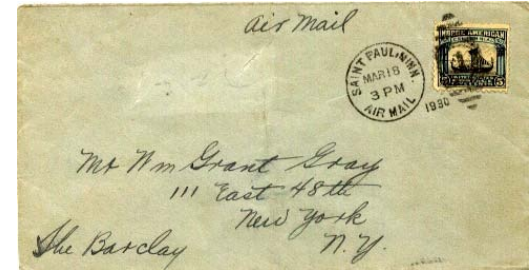 Air Mail
NORSE AMERICAN
SAINT PAUL, MINN.
MAR 18
3 PM
AIR MAIL
1930
5
Mr Wm Grant Gray
111 East 48th
New York
N.Y.
The Barclay